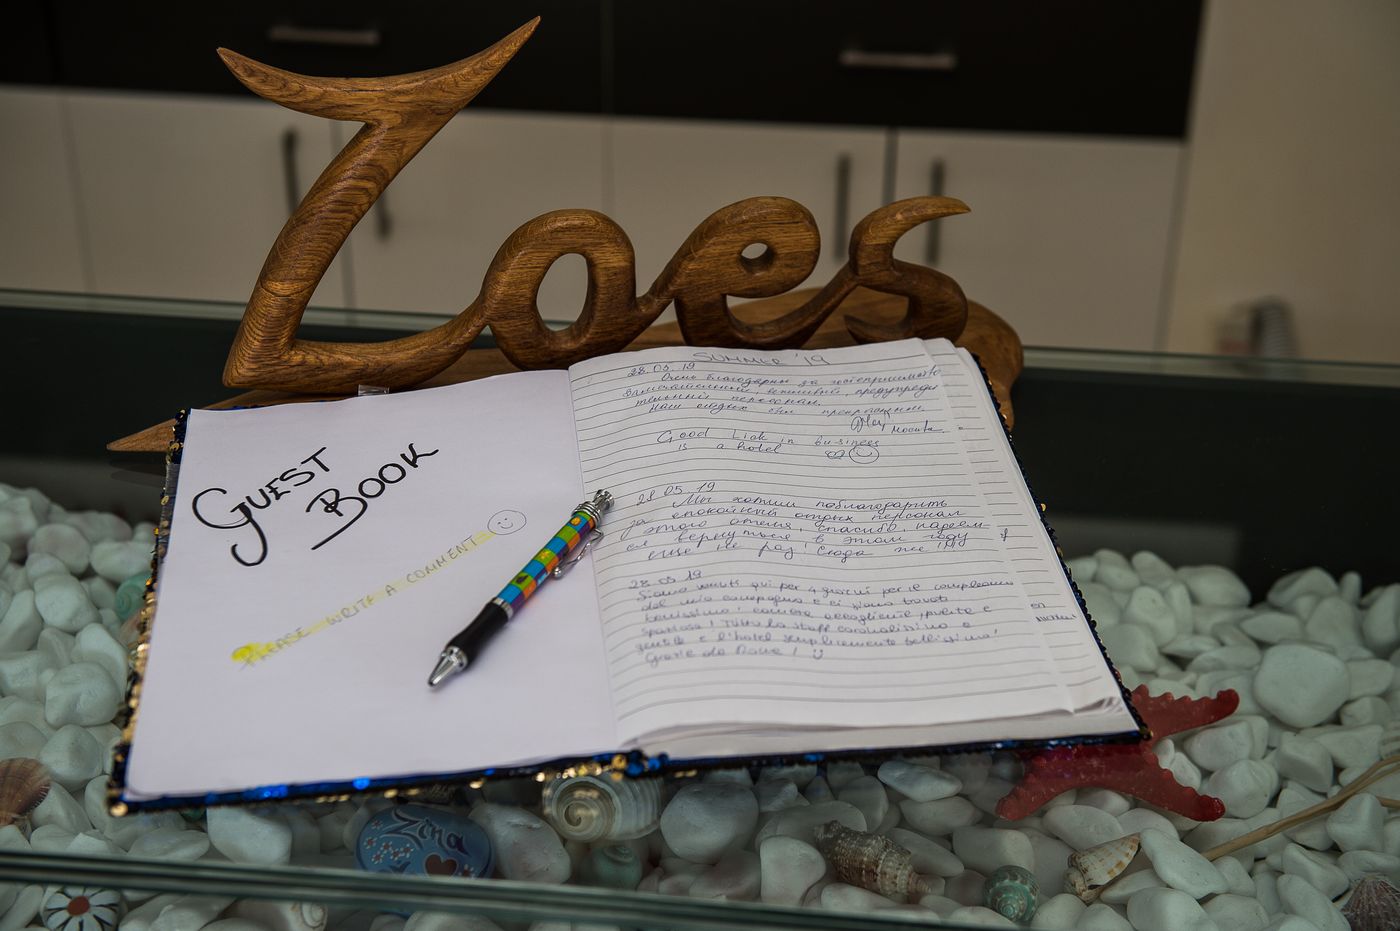 Zoes
GUEST
BOOK
PLEASE WRITE A COMMENT
SUMMER '19
28.05.19
Очень благодарны за гостеприимство,
Замечательный, вежливый, предупреди
тельный персонал.
Наш отдых был прекрасным.
Москва.
Good Lick in business
is a hotel
28.05.19
Мы хотим поблагодарить
за спокойный отдых персонал
этого отеля, спасибо, надеем-
ся вернуться в этом году и
еще не раз! Сюда же!!!
28.05.19
Siamo venuti qui per 4 giorni per il compleanno
del mio compagno e ci siamo trovati
benissimo! camere accoglienti, pulite e
spaziose! Tutto lo staff cordialissimo e
gentile e l'hotel semplicemente bellissimo!
Grazie da Roma!
Zina